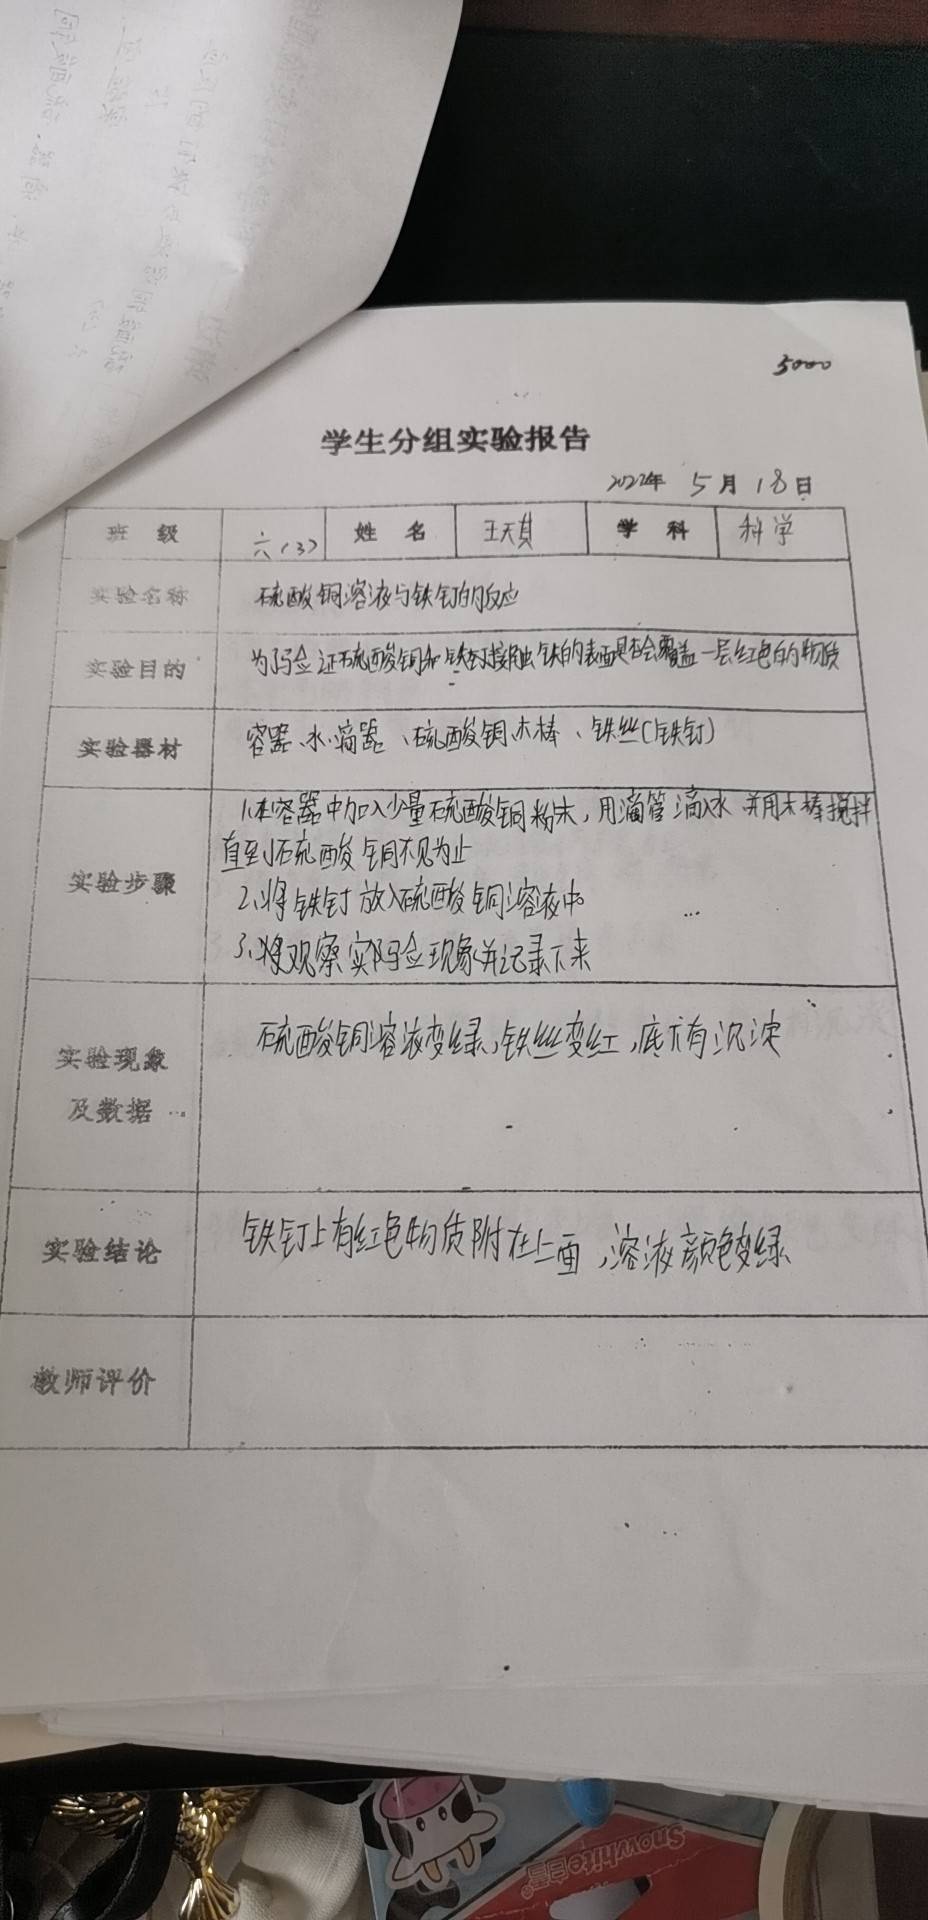 5000
学生分组实验报告
2022年 5月18日
班 级 六(3) 姓 名 王天其 学 科 科学
实验名称 硫酸铜溶液与铁钉的反应
实验目的 为了验证硫酸铜和铁钉接触铁的表面是否会覆盖一层红色的物质
实验器材 容器、水、滴器、硫酸铜、木棒、铁丝(铁钉)
1.在容器中加入少量硫酸铜粉末,用滴管滴入水并用木棒搅拌
直到硫酸铜不见为止
实验步骤
2、将铁钉放入硫酸铜溶液中。
3、将观察实验现象并记录下来
硫酸铜溶液变绿,铁丝变红,底下有沉淀
实验现象
及数据
实验结论 铁钉上有红色物质附在上面,溶液颜色变绿
教师评价
Snowwhite白雪